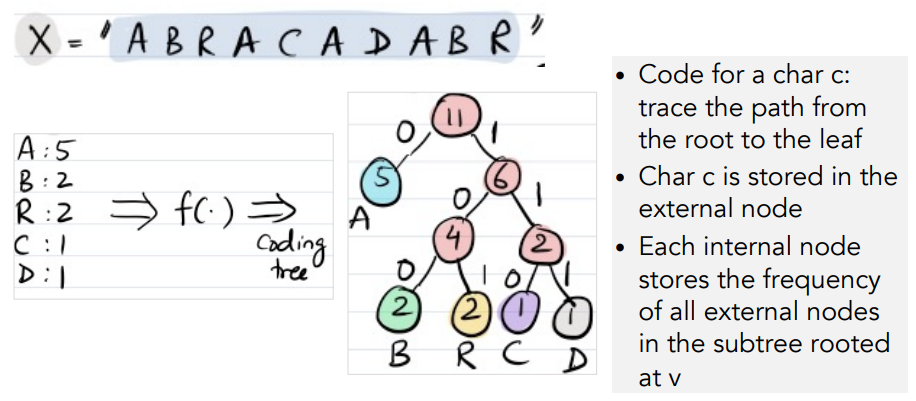 X = "ABRACADABR"
A : 5
B : 2
R : 2
C : 1
D : 1
⇒ f(·) ⇒
Coding
tree
11
0 1
5 6
A
0 1
4 2
0 1 0 1
2 2 1 1
B R C D
• Code for a char c:
trace the path from
the root to the leaf
• Char c is stored in the
external node
• Each internal node
stores the frequency
of all external nodes
in the subtree rooted
at v